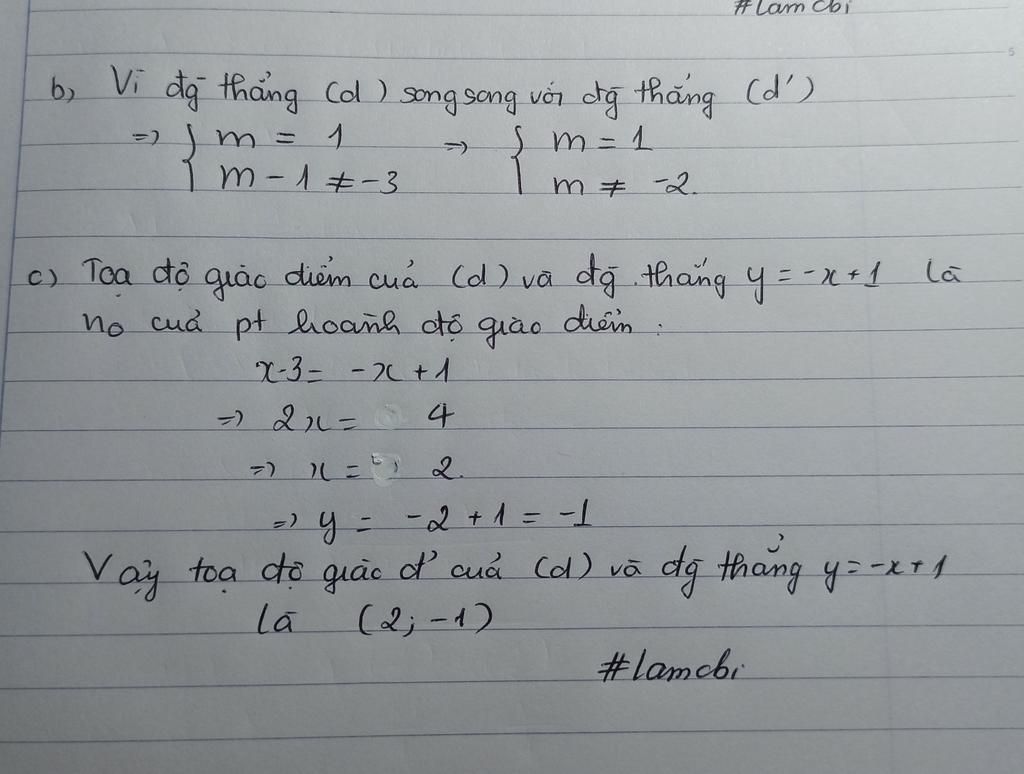 #lamcbi
b, Vì đg̃ thẳng (d) song song với đg̃ thẳng (d')
=> { m = 1 => { m = 1
m - 1 ≠ -3 m ≠ -2.
c) Toạ độ giao điểm của (d) và đg̃ thẳng y = -x + 1 là
no của pt hoành độ giao điểm :
x-3 = -x + 1
=> 2x = 4
=> x = 2.
=> y = -2 + 1 = -1
Vậy toạ độ giao đ' của (d) và đg̃ thẳng y = -x + 1
là (2; -1)
#lamcbi